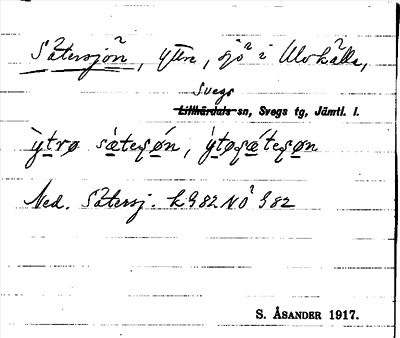 Sätersjön, yttre, sjö i Ulvkälla,
Svegs
Lillhärdals sn, Svegs tg, Jämtl. l.
ỳtrø sä̀teʂøn, ýtøʂä́teʂøn
Ned. Sätersj. k G82 NO G82
S. ÅSANDER 1917.